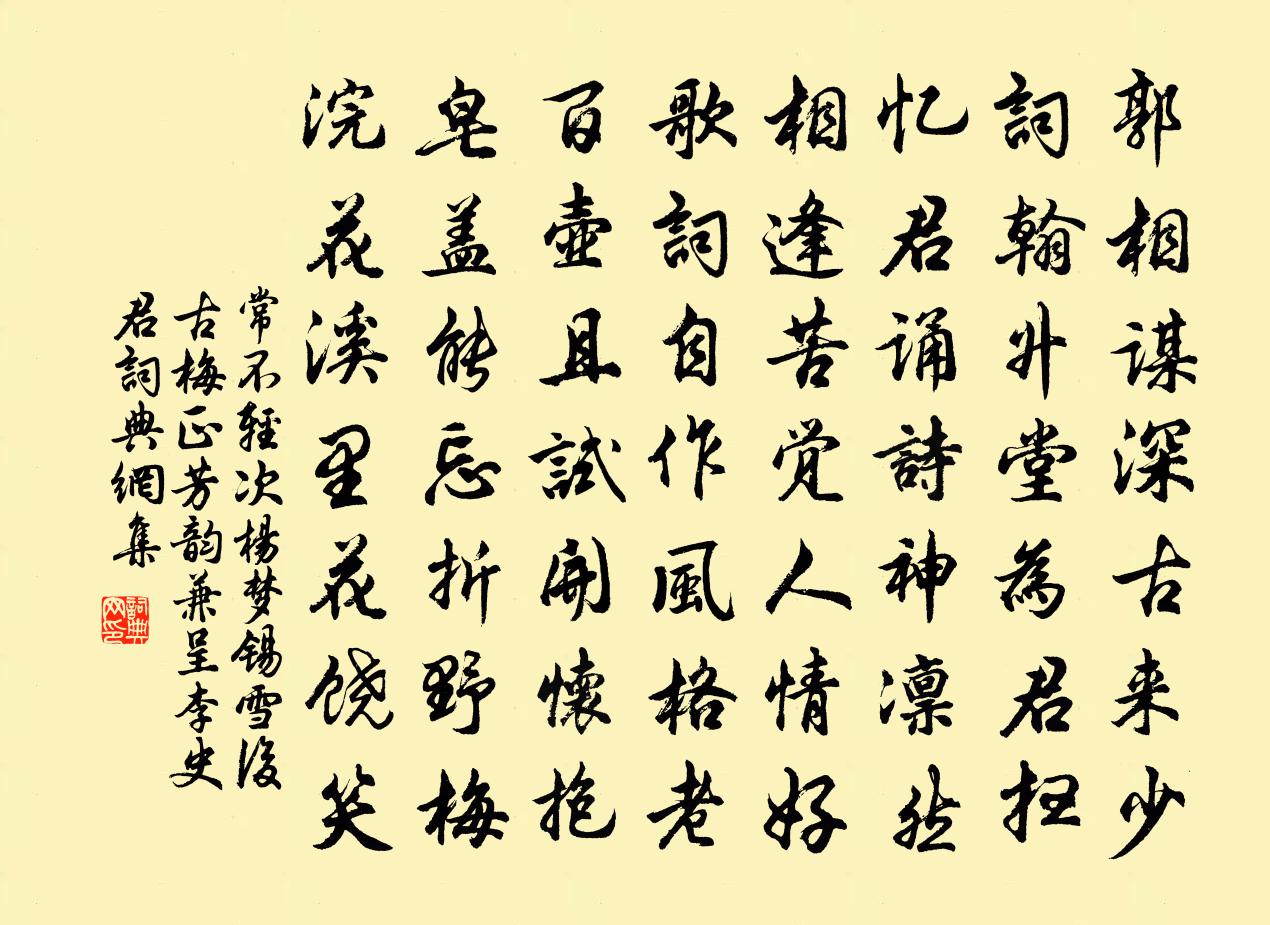 郭相謀深古来少
詞翰升堂為君扫
忆君诵詩神凛然
相逢苦觉人情好
歌詞自作風格老
百壺且試開懷抱
皂盖能忘折野梅
浣花溪里花饶笑
常不輕次楊梦锡雪後
古梅正芳韵兼呈李史
君詞典網集
詞典网印